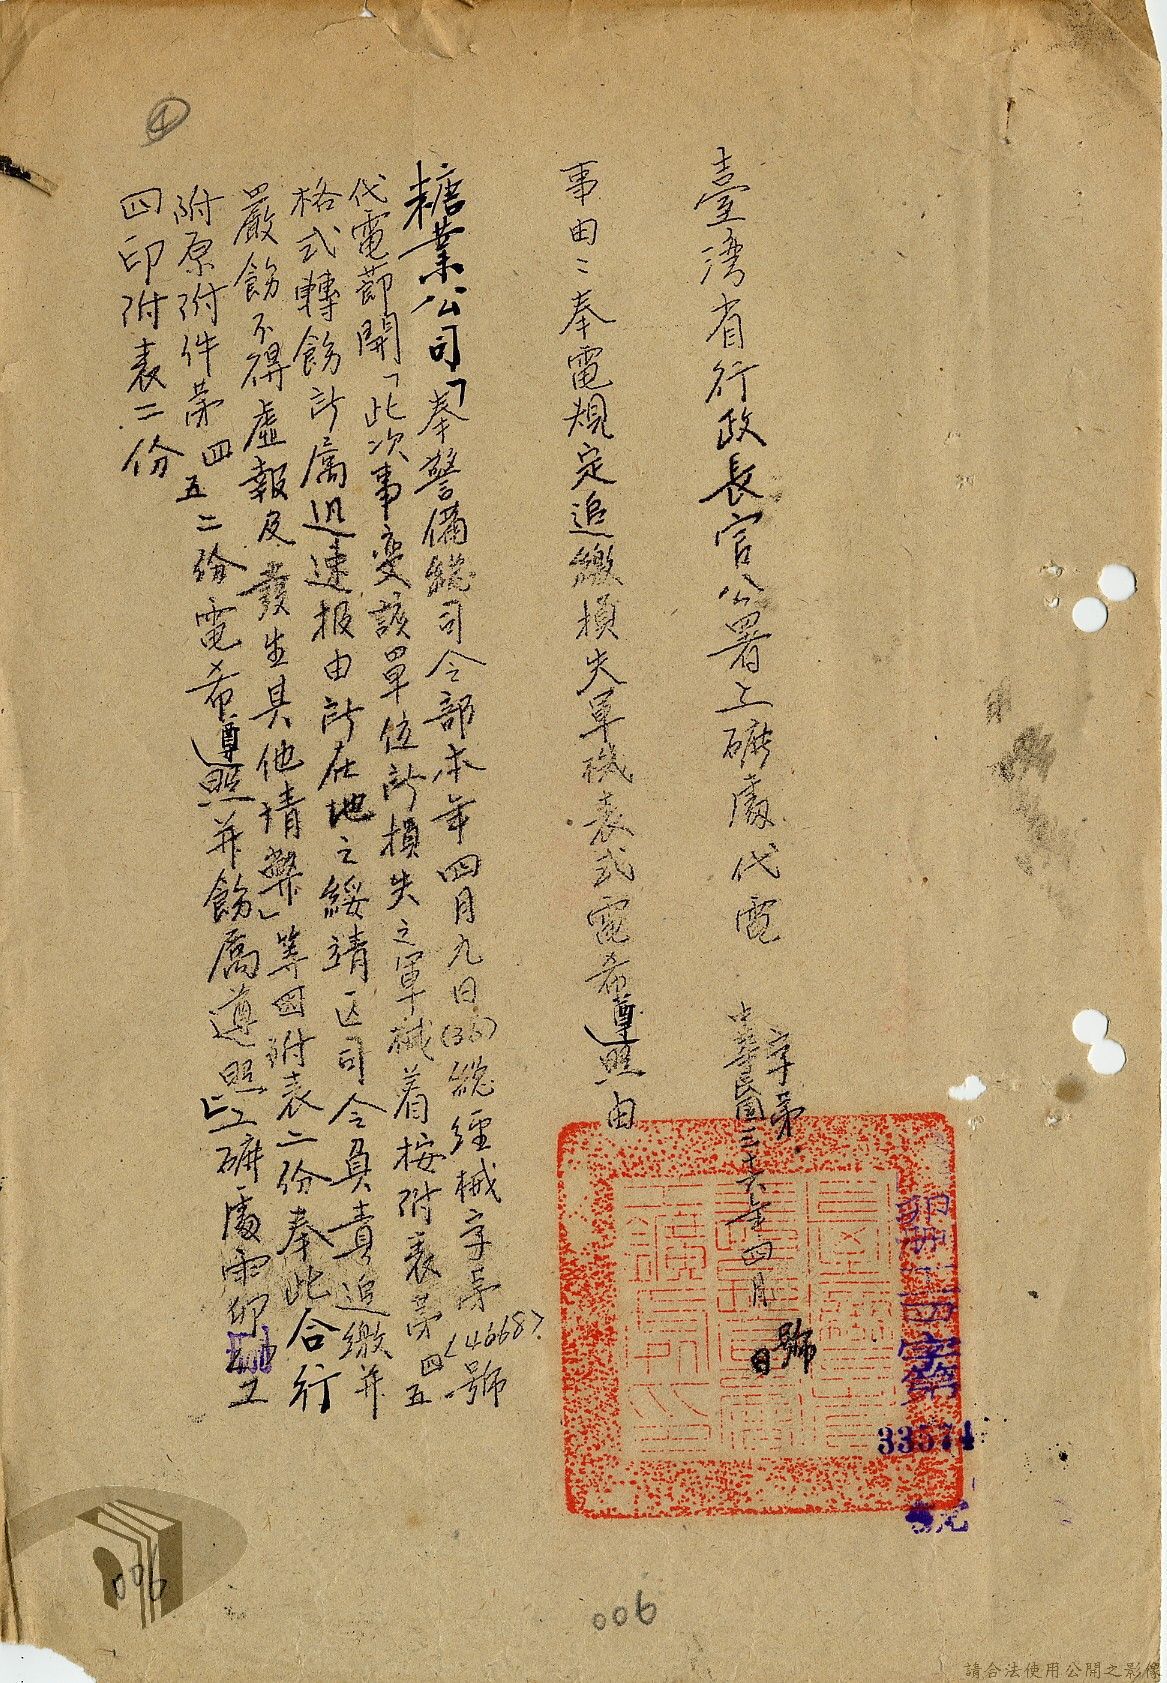 臺湾省行政長官公署工礦處代電
字第
號
中華民國三十六年四月
日
卯
工四字第
33574
號
事由：奉電規定追繳損失軍械表式電希遵照由
糖業公司「奉警備總司令部本年四月九日(36)總經械字第<4668>號
代電節開「此次事变該單位所損失之軍械着按附表第四五
格式轉飭所屬迅速报由所在地之綏靖区司令負責追繳并
嚴飭不得虛報及發生其他情弊」等因附表二份奉此合行
附原附件第四五二份電希遵照并飭屬遵照」工礦處 卯 工
四印附表二份
4
006
006
請合法使用公開之影像